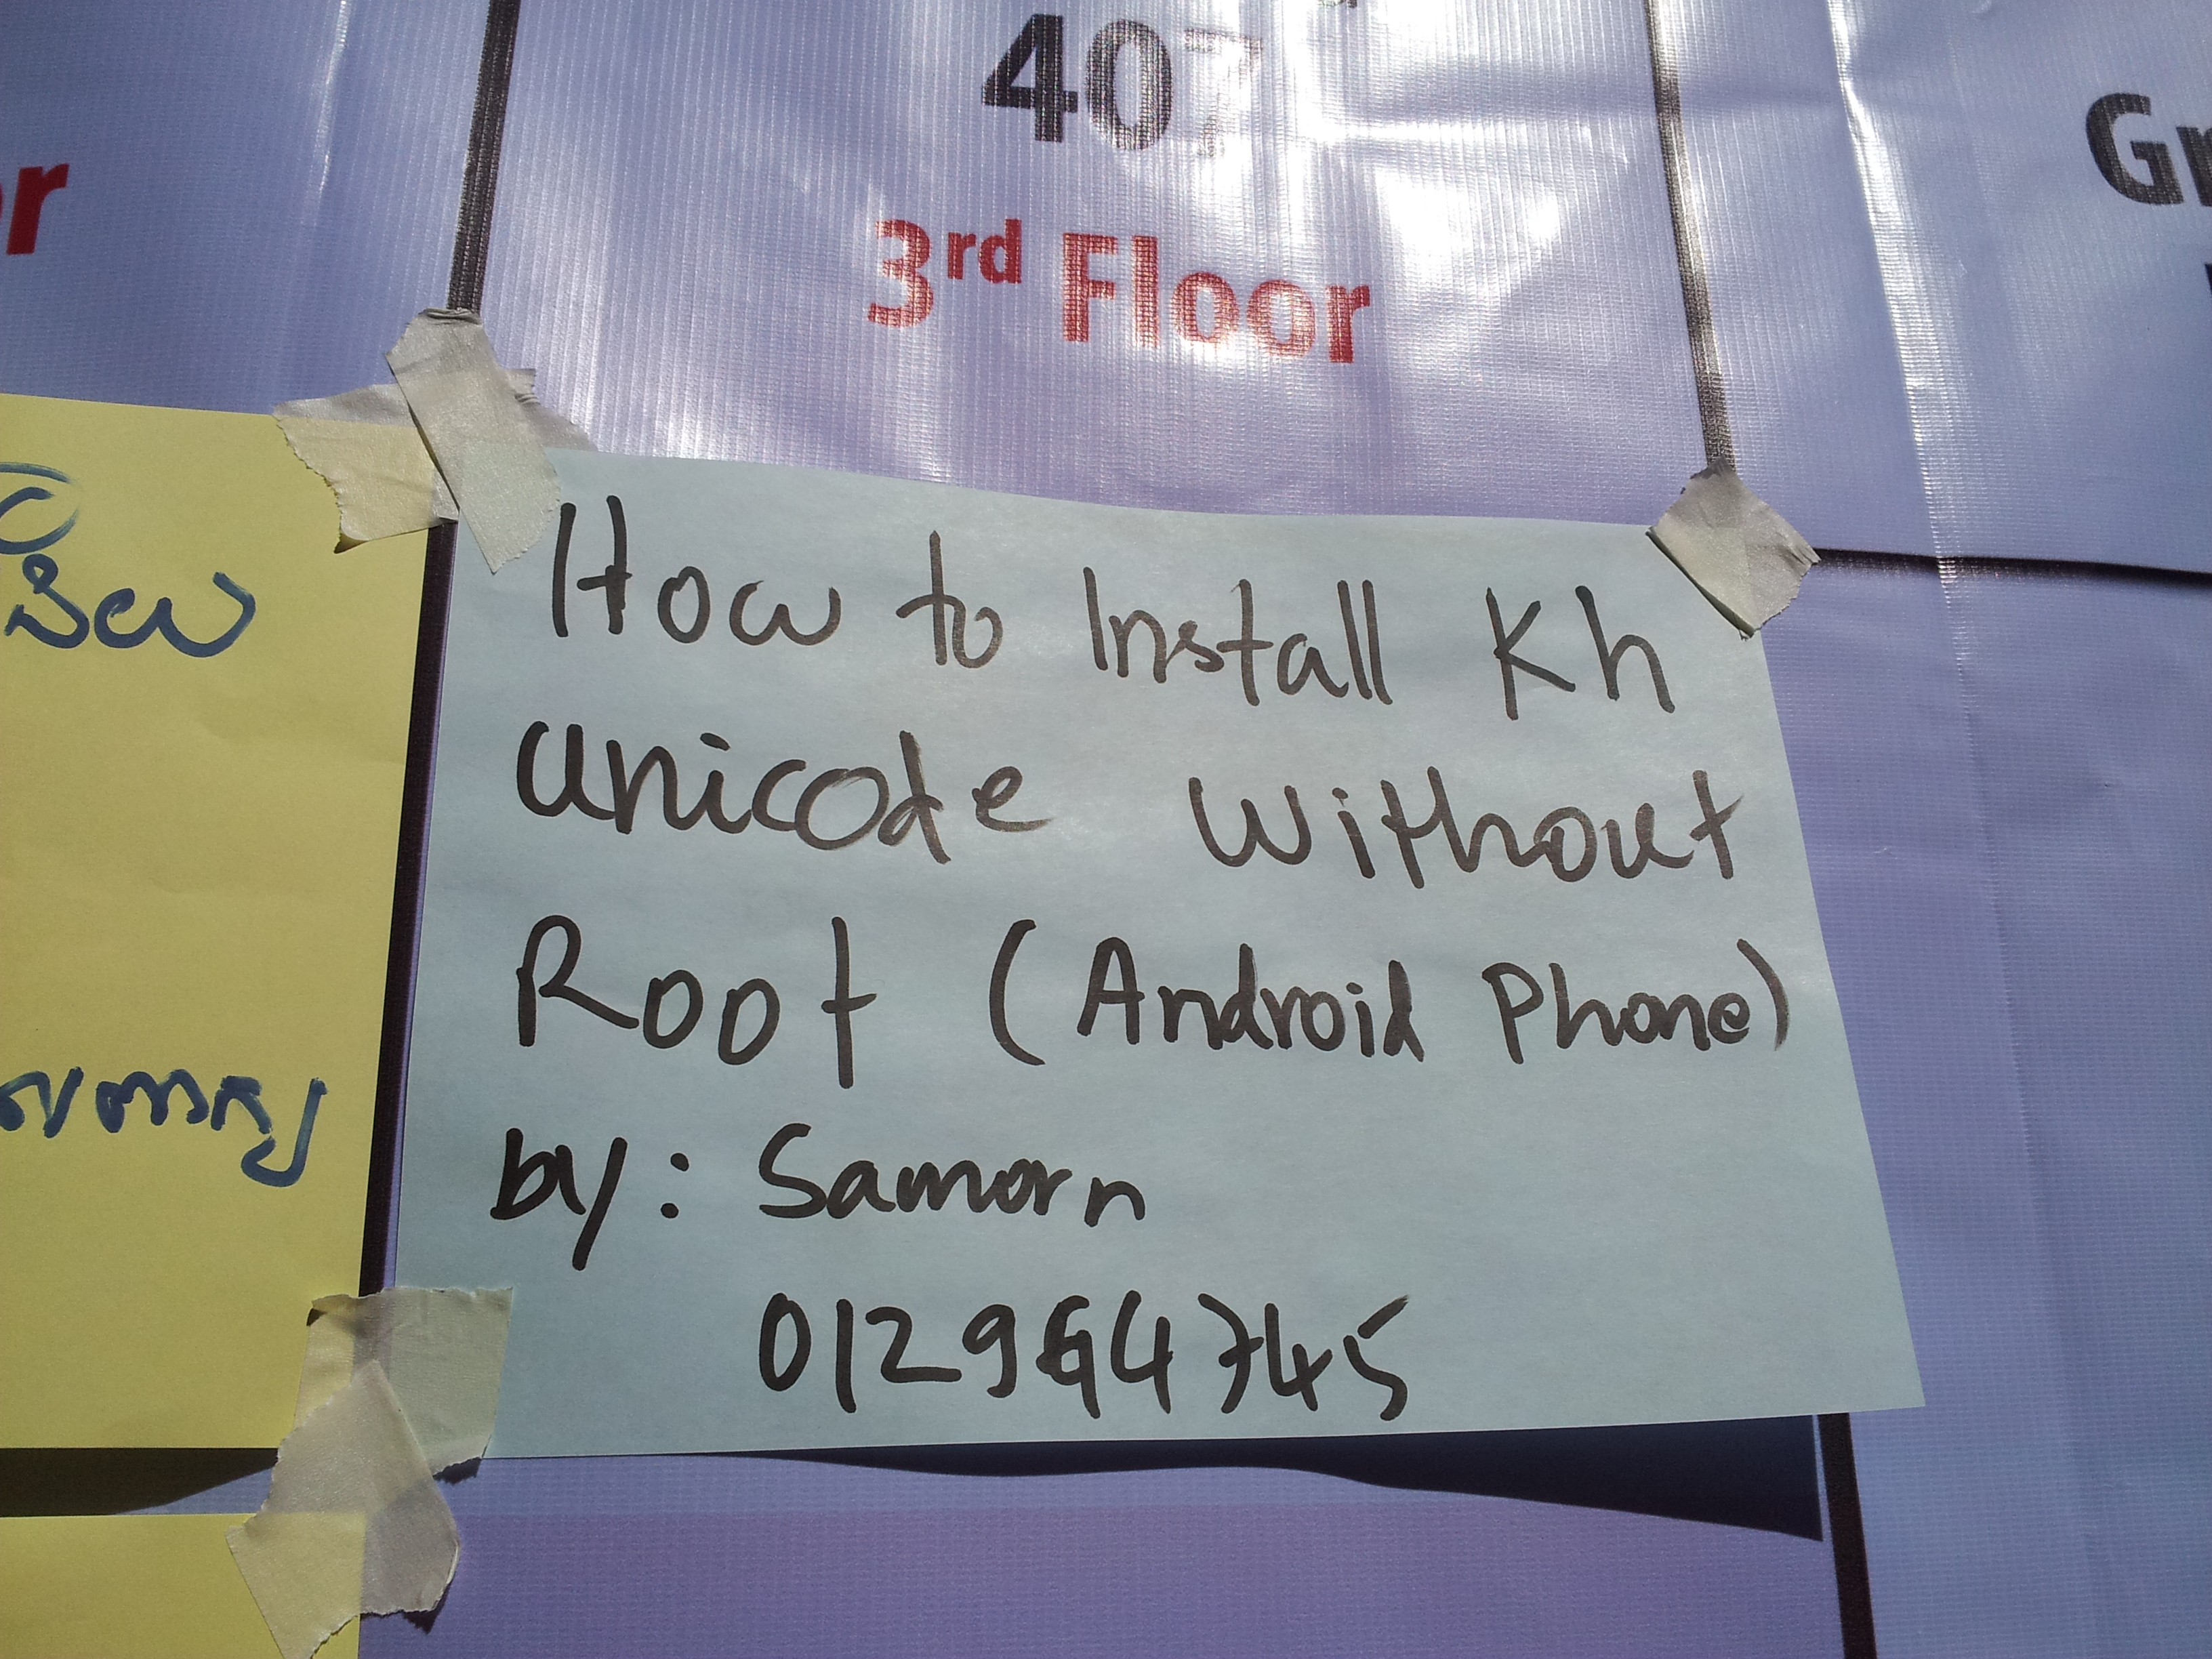 407
3rd Floor
How to Install Kh
unicode without
Root (Android Phone)
by: Samorn
012964745